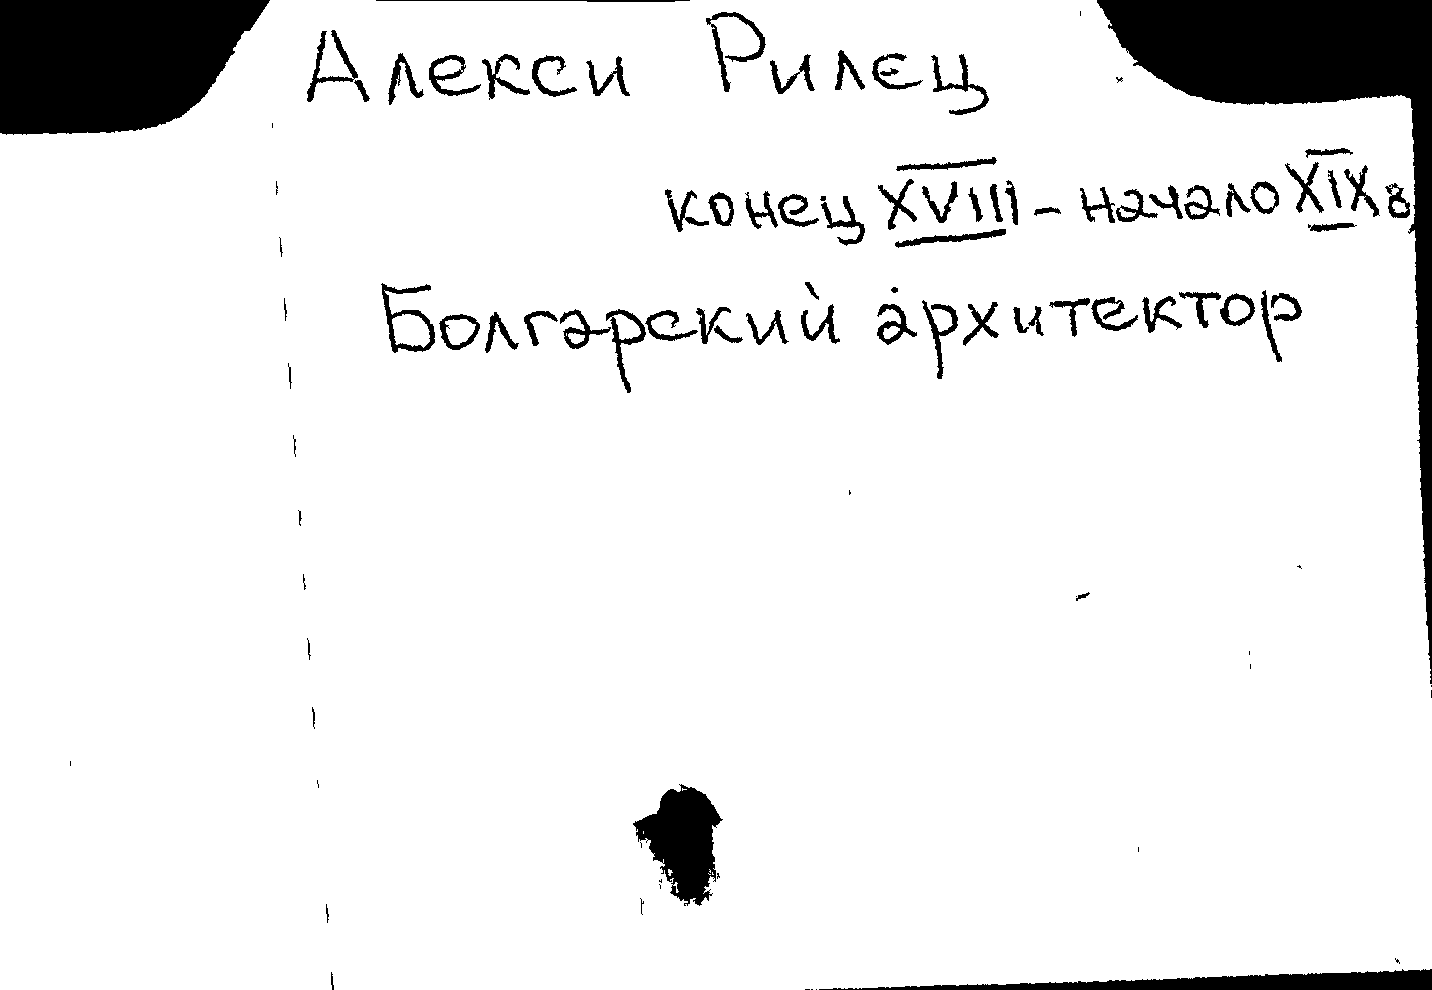 Алекси Рилец
конец XVIII - начало XIX в.
Болгарский архитектор